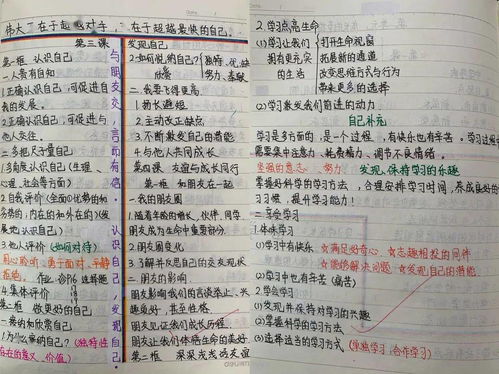 伟大 在于 在于超越最快的自己.
第三课
第一框 认识自己
一.人贵有自知
1.正确认识自己,可促进自我的发展.
2.正确认识自己,可促进与他人交往.
二.多把尺子量自己
1.多角度认识自己(生理、心理、社会等方面)
2.自我评价(全面
内在的和外在的
认识自己)
3.他人评价(如何对待)
用心聆听,勇于面对,平静拒绝.
4.集体评价
第二框 做更好的自己
一.接纳和欣赏自己
1.为什么
存在的意义、价值)
与朋友交 言而有信
发现自己
发现自己
2.如何悦纳自己?
欣赏
努力、奉献
二.我要飞得更高
1.扬长避短
2.主动改正缺点
3.不断激发自己的潜能
4.与他人共同成长
第四课 友谊与成长同行
第一框 和朋友在一起
一.我的朋友圈
1.随着年龄的增长,伙伴、同学
朋友成为生命中重要部分.
2.朋友圈变化
3.了解并反思自己的交友现状
二.朋友的影响
朋友影响我们的言谈举止、兴趣爱好,甚至性格
朋友见证我们成长历程
朋友让我们体悟生命的美好.
第二框 深深浅浅话友谊
2.学习点亮生命
(1)学习让我们拥有更充实的生活
打开生命视窗
拓展新的通道
改变思维方式与行为
带来更多的选择
(2)学习激发我们前进的动力
自己补充
学习是多方面的,是一个过程,有快乐也有辛苦.学习过程中
需要集中注意力、耗费精力、调节不良情绪.
坚强的意志、努力
发现、保持学习的乐趣
掌握好科学的学习方法,合理安排学习时间,养成良好的
习惯,提升学习能力!
二.享受学习
1.体味学习
(1)学习中有快乐 ☆满足好奇心 ☆志趣相投的同伴
☆能够解决问题 ☆发现自己的潜能
(2)学习中也有辛苦(痛苦)
2.学会学习
(1)发现并保持对学习的兴趣
(2)掌握科学的学习方法
(3)选择适当的学习方式(单独学习、合作学习)